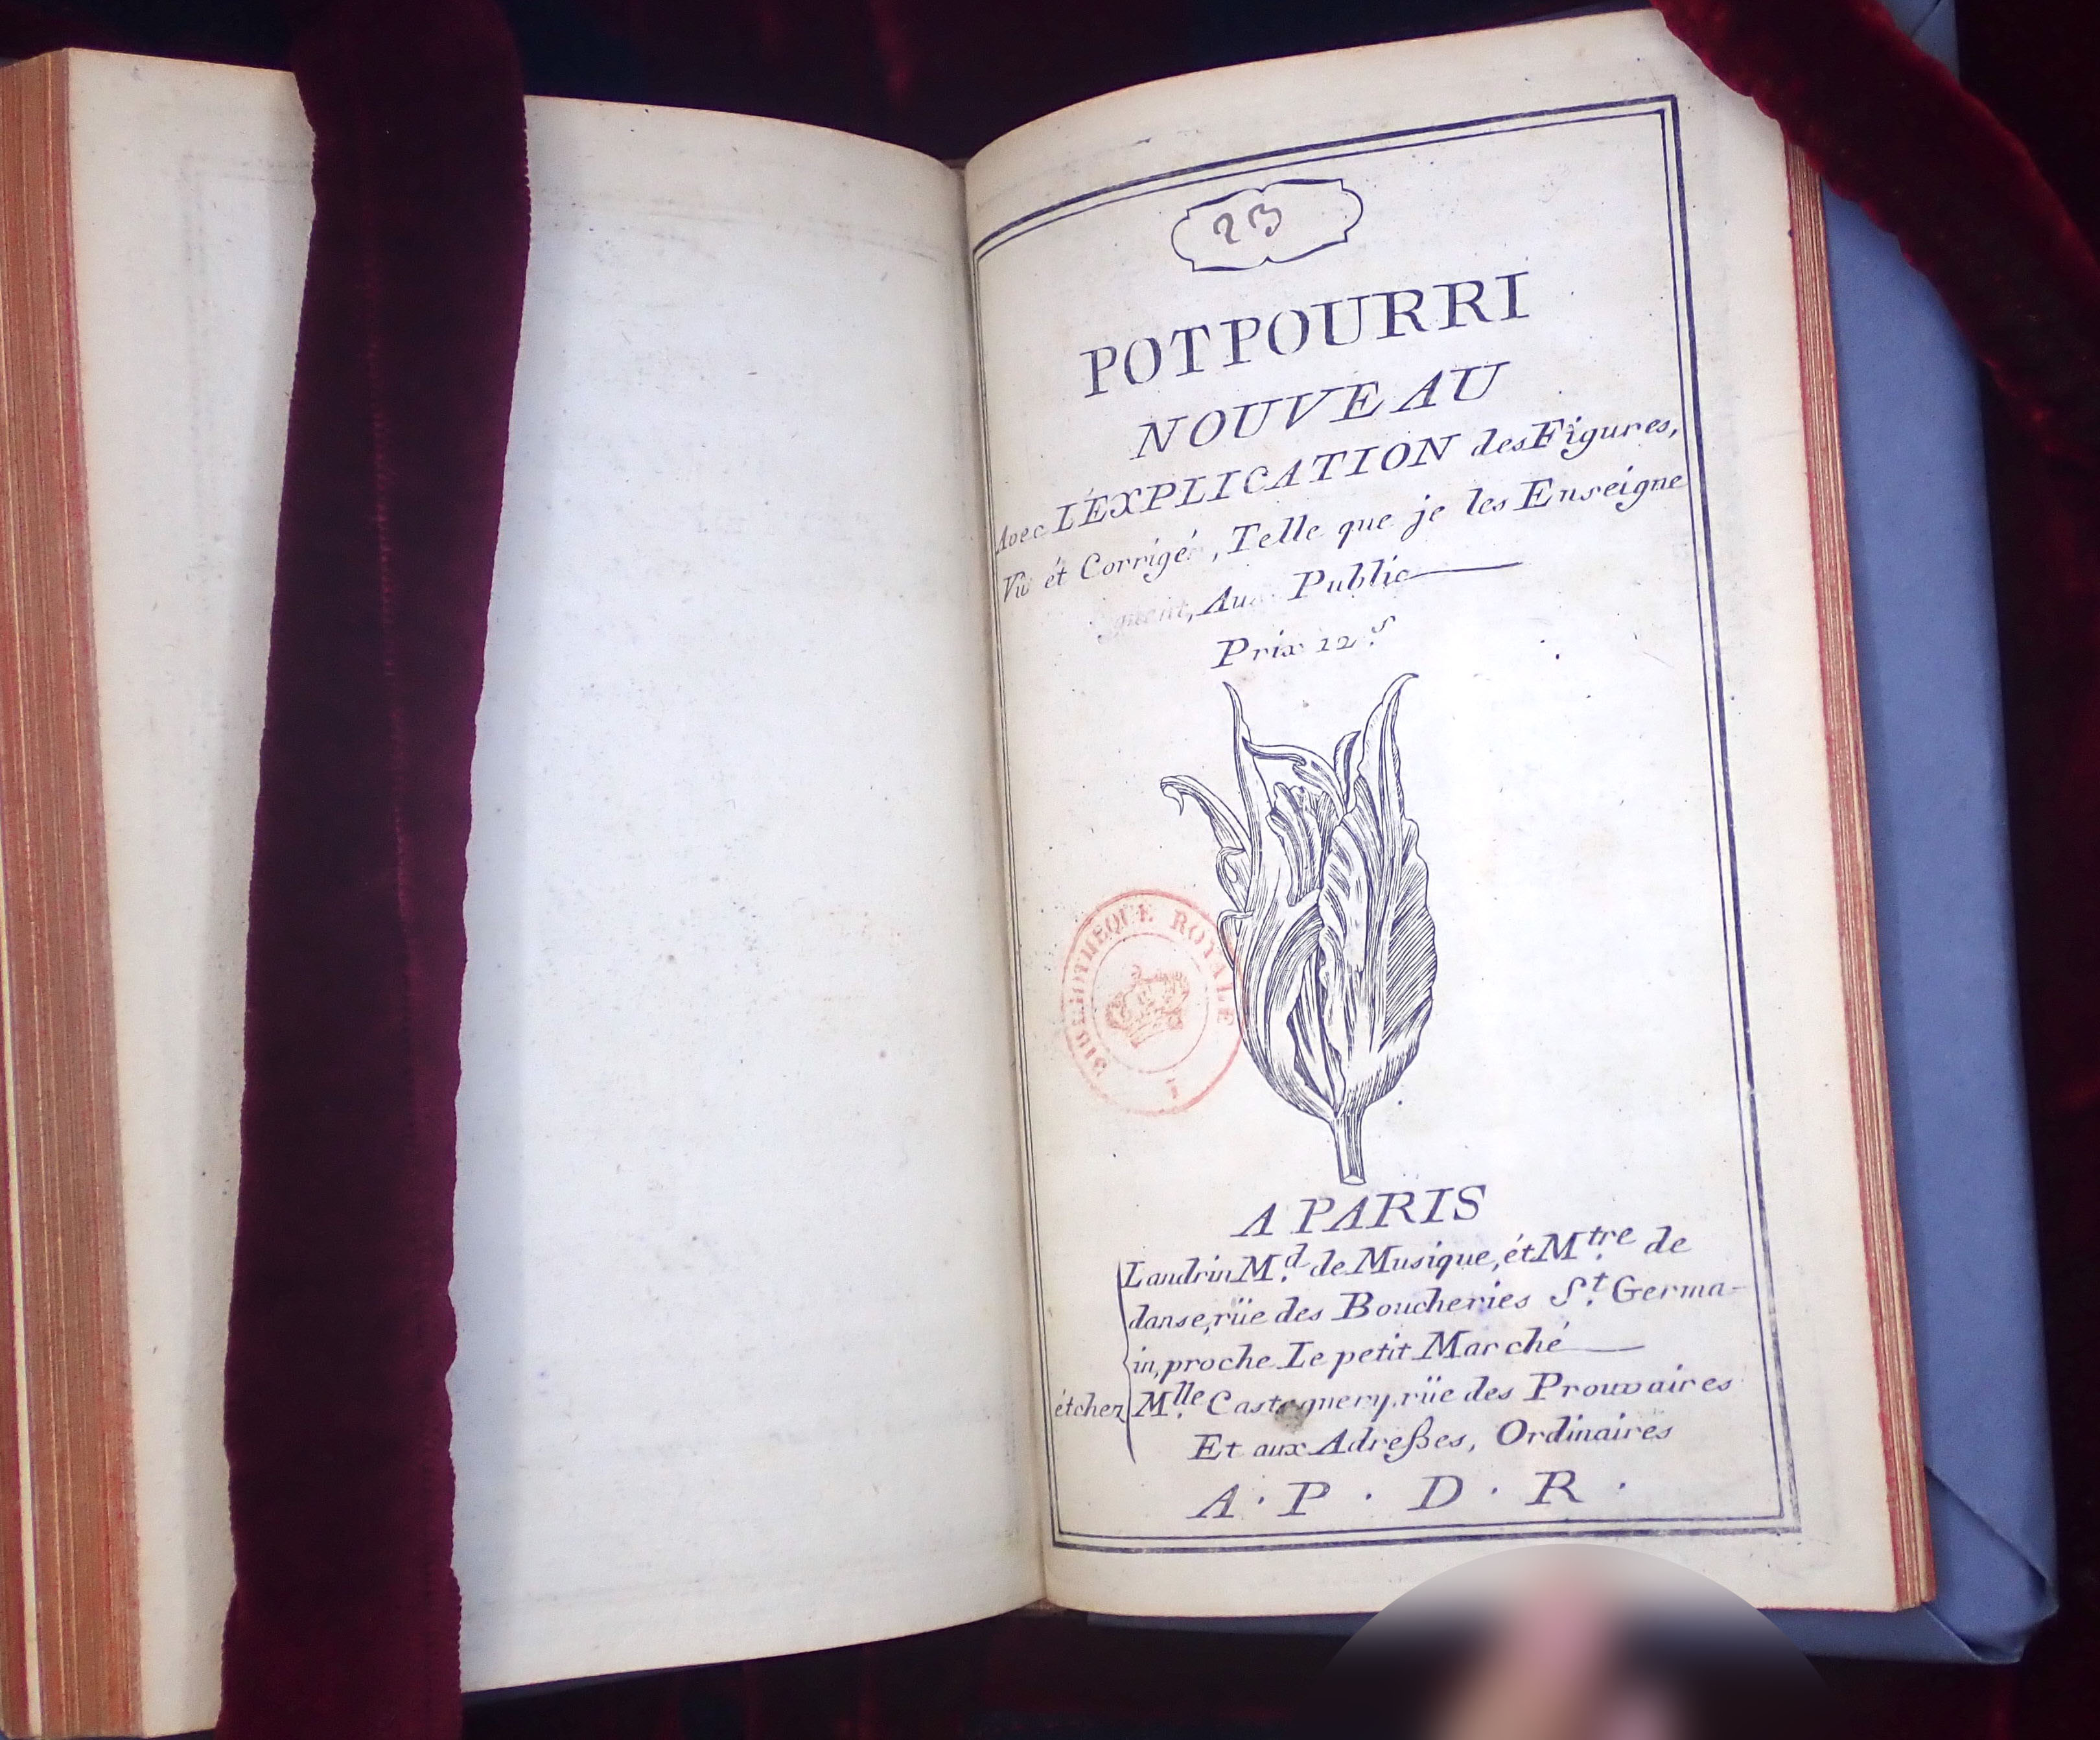 23
POTPOURRI
NOUVEAU
Avec L'EXPLICATION des Figures,
Vu ét Corrigé, Telle que je les Enseigne
Public
Prix 12.s
BIBLIOTHEQUE ROYALE
A PARIS
Landrin M.d de Musique, ét M.tre de
danse, rüe des Boucheries S.t Germa-
in, proche Le petit Marché
ét chez M.lle Castagnery, rüe des Prouvaires
Et aux Adreßes, Ordinaires
A. P. D. R.